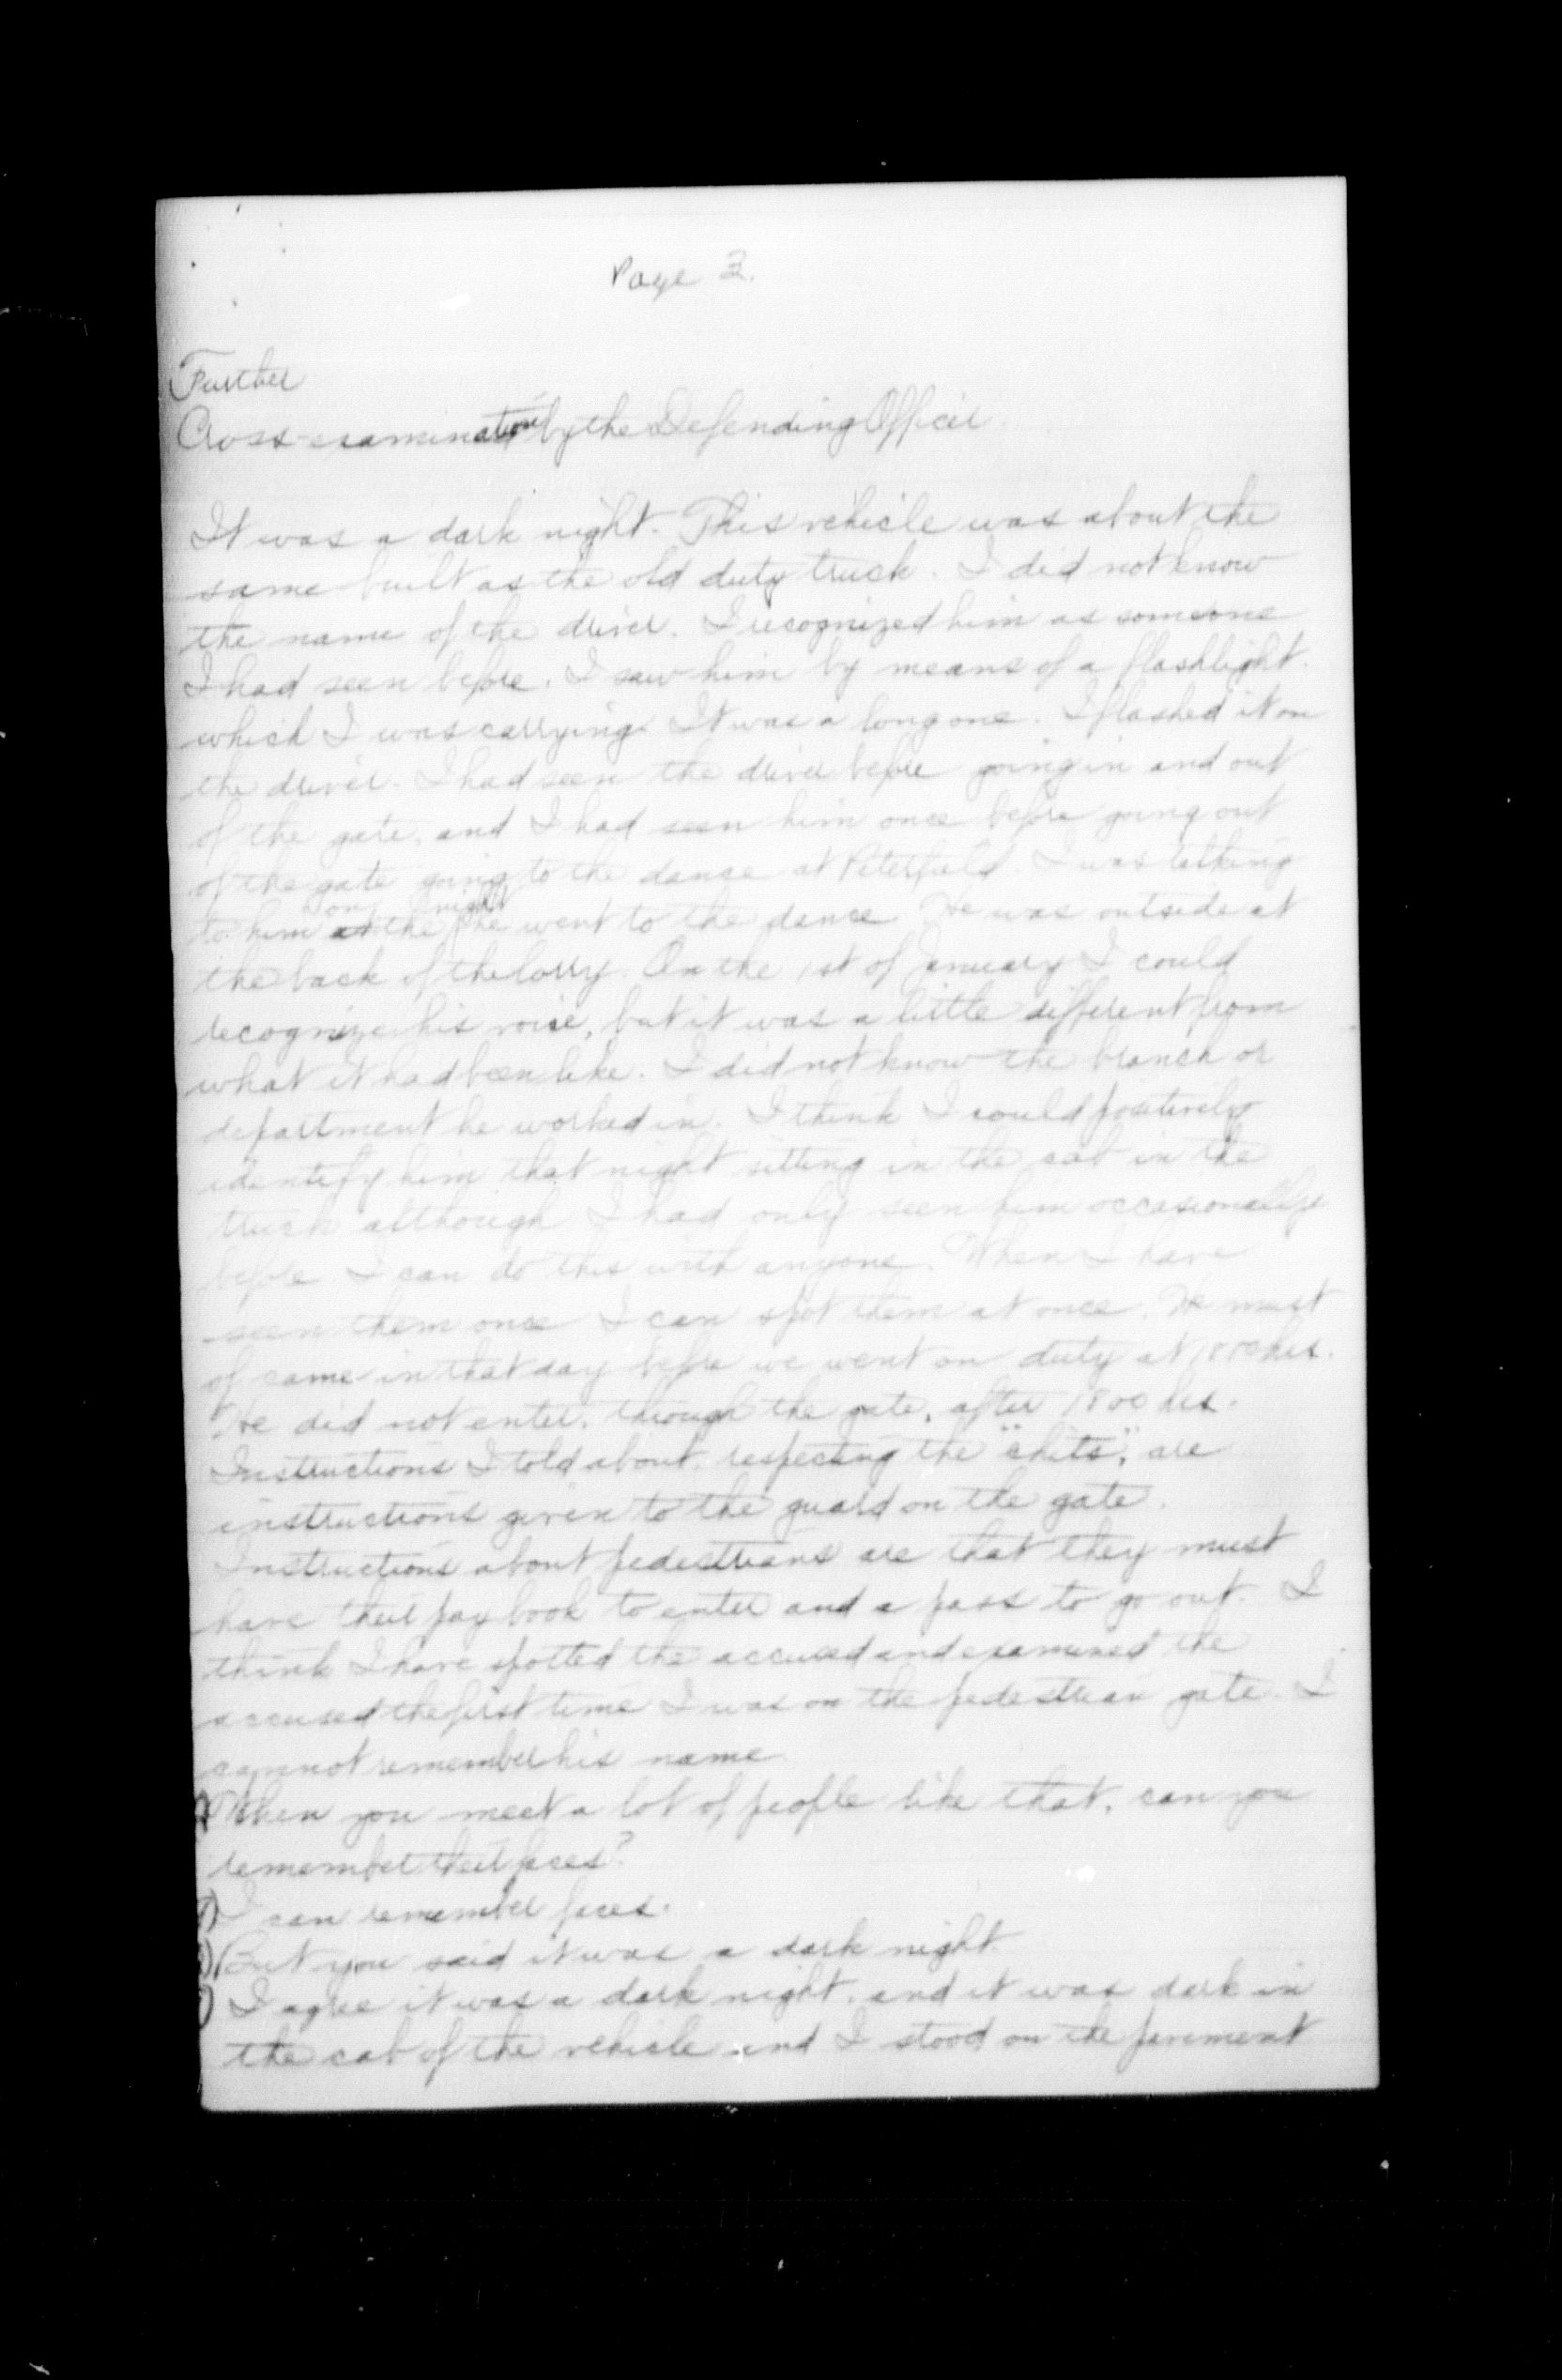 Page 3.
Further
Cross-examination by the Defending Officer
It was a dark night. This vehicle was about the
same built as the old duty truck. I did not know
the name of the driver. I recognized him as someone
I had seen before. I saw him by means of a flashlight.
which I was carrying. It was a long one. I flashed it on
the driver. I had seen the driver before going in and out
of the gate, and I had seen him once before going out
of the gate going to the dance at Petersfield. I was talking
on night
to him at the he went to the dance. He was outside at
the back of the lorry. On the 1st of January I could
recognize his voice, but it was a little different from
what it had been like. I did not know the branch or
department he worked in. I think I could positively
identify him that night sitting in the cab in the
truck although I had only seen him occasionally
before. I can do this with anyone. When I have
seen them once I can spot them at once. He must
of came in that day before we went on duty at 1800 hrs.
He did not enter, through the gate, after 1800 hrs.
Instructions I told about, respecting the "chits", are
instructions given to the guard on the gate.
Instructions about pedestrians are that they must
have their pay book to enter and a pass to go out. I
think I have spotted the accused and examined the
accused the first time I was on the pedestrian gate. I
cannot remember his name.
When you meet a lot of people like that, can you
remember their faces?
I can remember faces.
But you said it was a dark night.
I agree it was a dark night, and it was dark in
the cab of the vehicle and I stood on the pavement